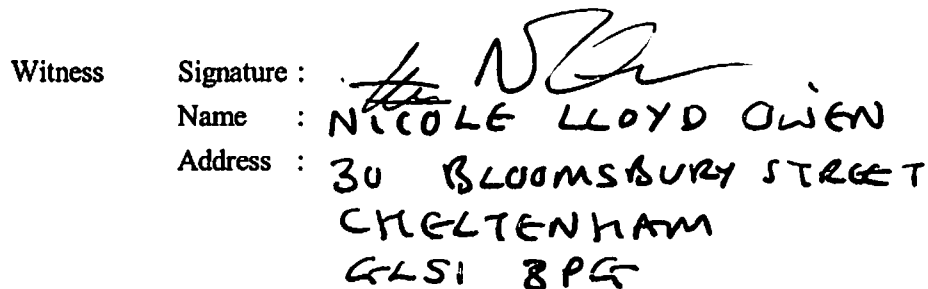 Witness Signature :
Name : NICOLE LLOYD OWEN
Address : 30 BLOOMSBURY STREET
CHELTENHAM
GL51 8PG